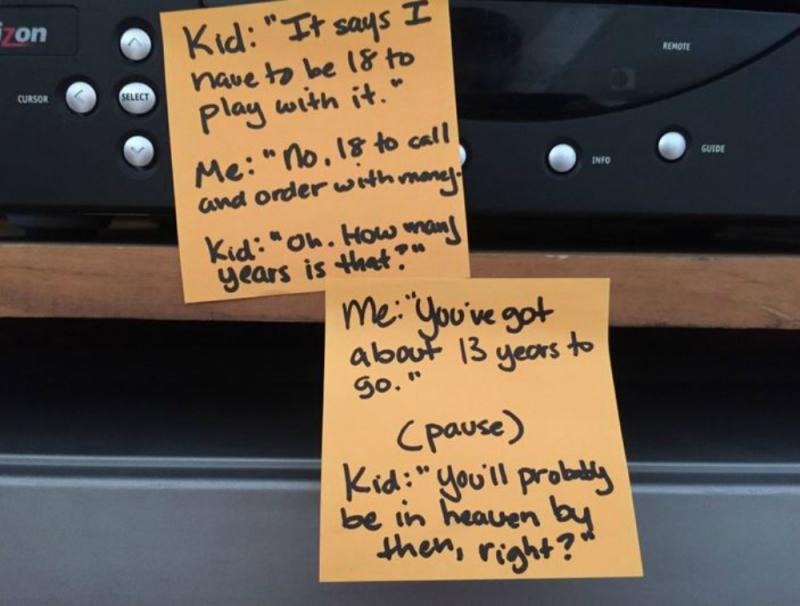 izon
CURSOR
SELECT
REMOTE
INFO
GUIDE
Kid: "It says I
have to be 18 to
play with it."
Me: "No, 18 to call
and order with money.
Kid: "Oh. How many
years is that?"
Me: "You've got
about 13 years to
go."
(pause)
Kid: "You'll probably
be in heaven by
then, right?"